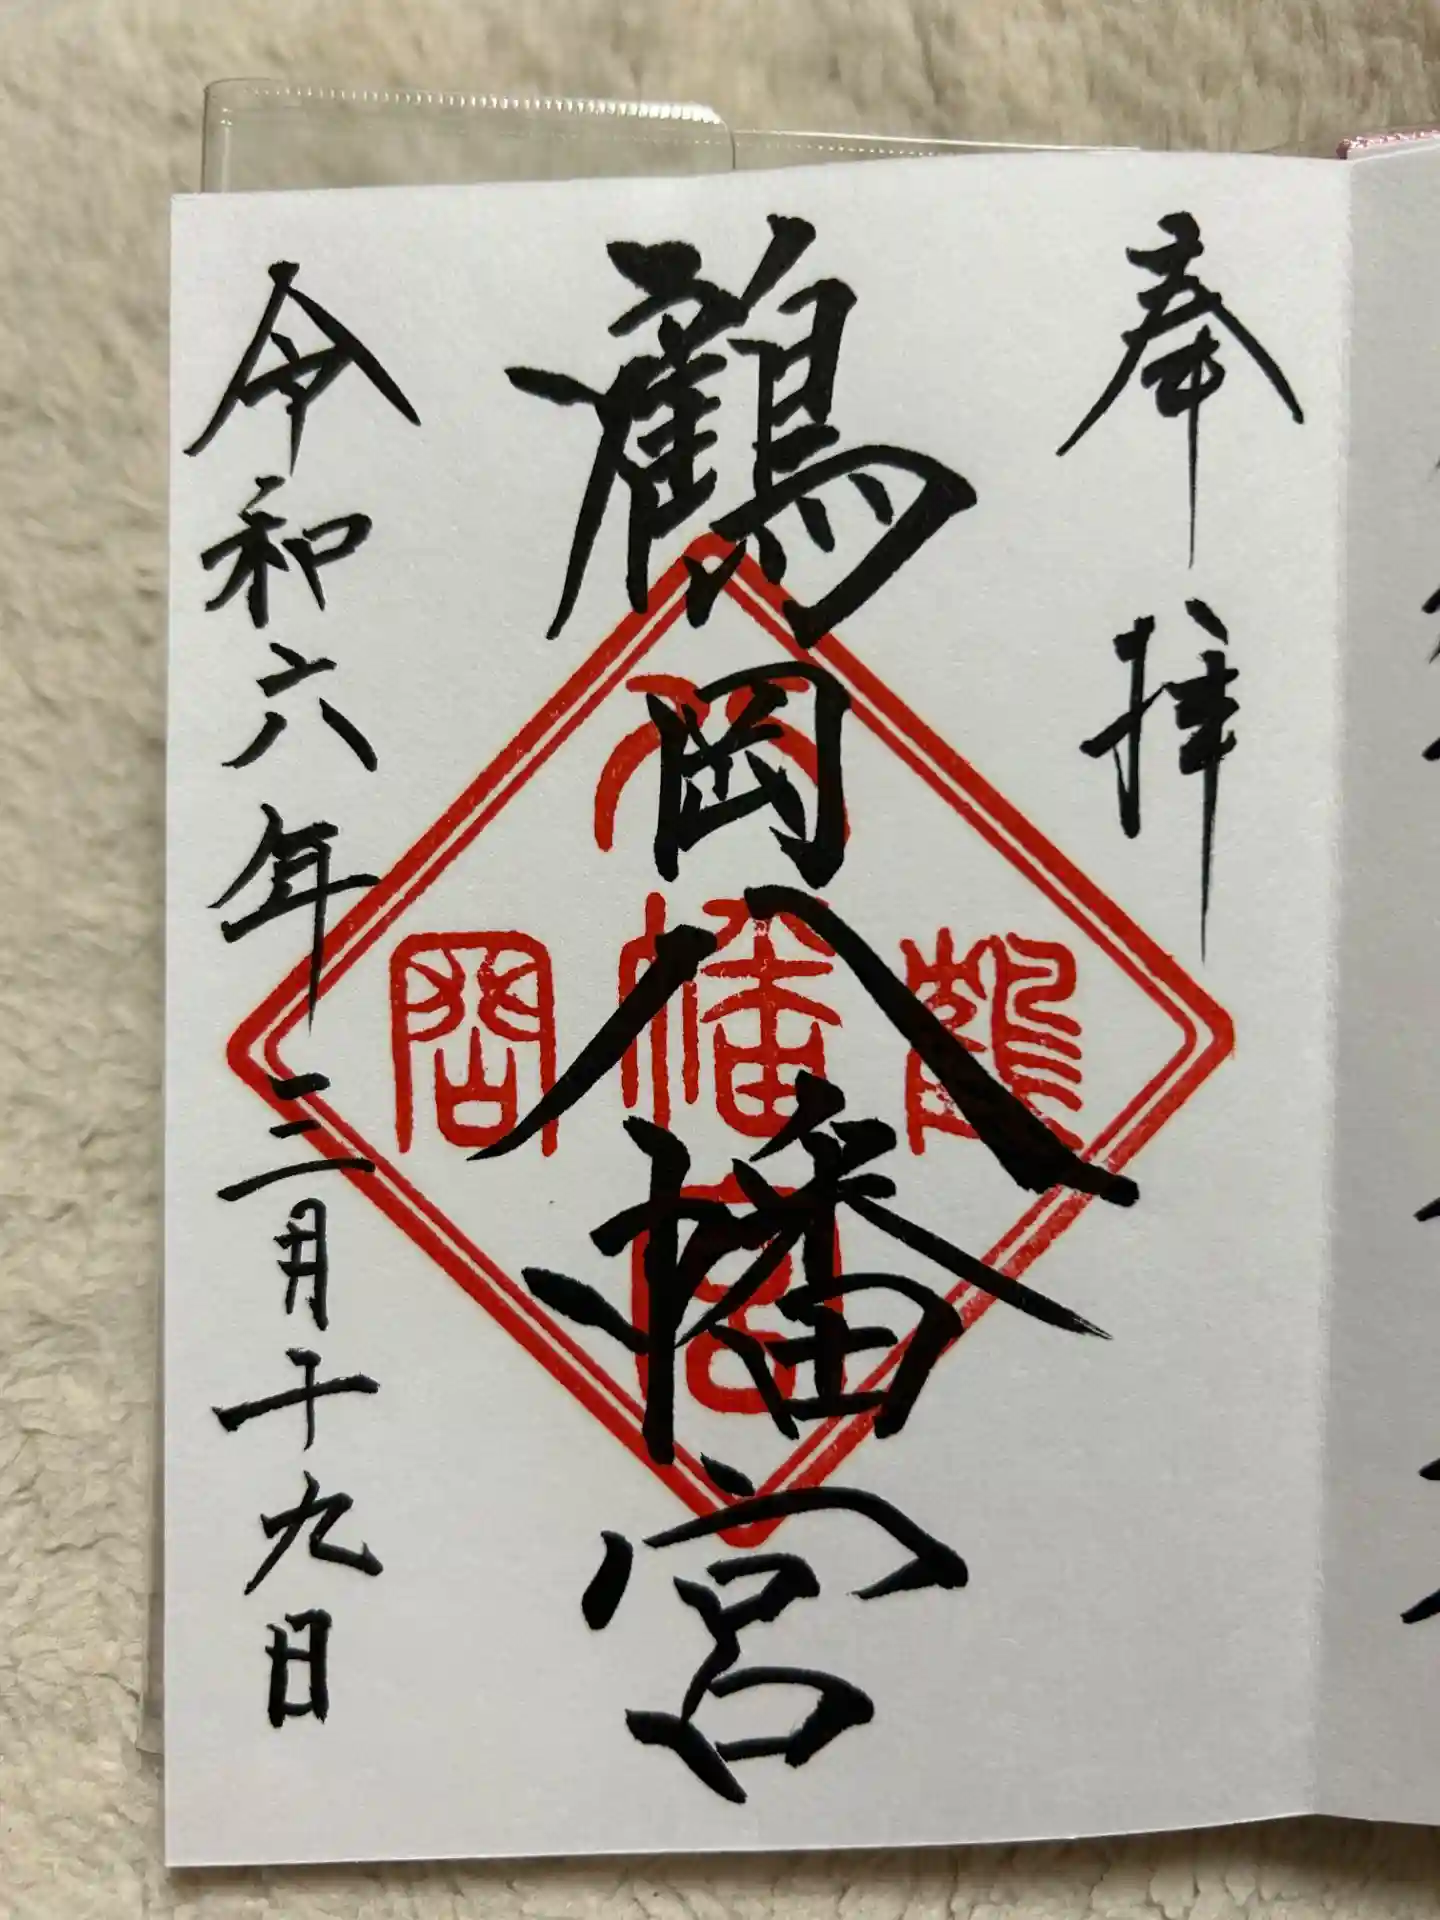 奉拝
鶴岡八幡宮
令和六年三月十九日
八
鶴幡岡
宮